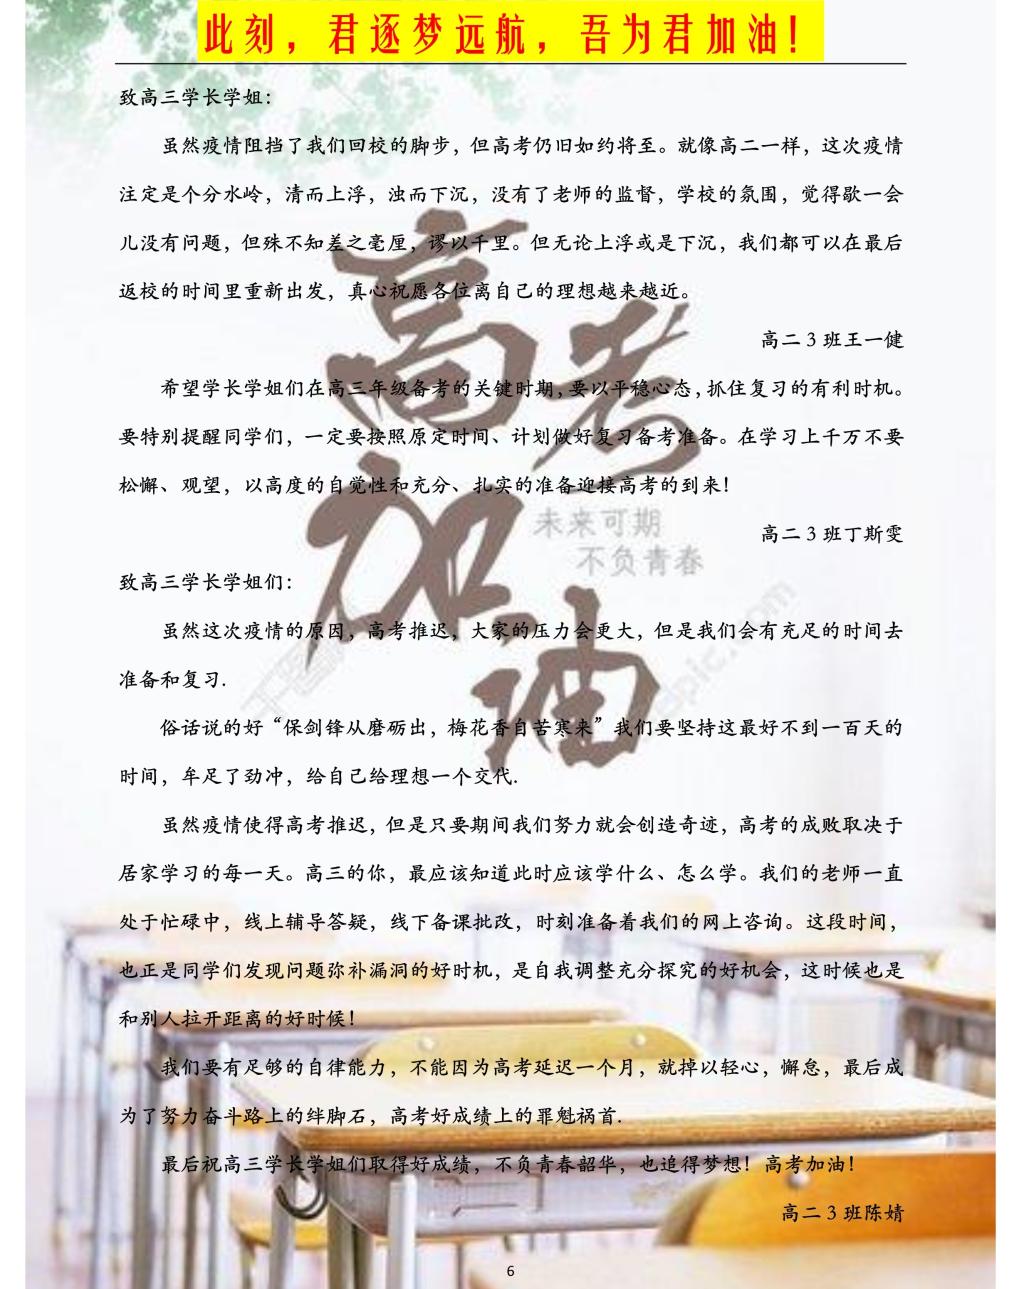 此刻，君逐梦远航，吾为君加油！
致高三学长学姐：
虽然疫情阻挡了我们回校的脚步，但高考仍旧如约将至。就像高二一样，这次疫情
注定是个分水岭，清而上浮，浊而下沉，没有了老师的监督，学校的氛围，觉得歇一会
儿没有问题，但殊不知差之毫厘，谬以千里。但无论上浮或是下沉，我们都可以在最后
返校的时间里重新出发，真心祝愿各位离自己的理想越来越近。
高二 3 班王一健
希望学长学姐们在高三年级备考的关键时期，要以平稳心态，抓住复习的有利时机。
要特别提醒同学们，一定要按照原定时间、计划做好复习备考准备。在学习上千万不要
松懈、观望，以高度的自觉性和充分、扎实的准备迎接高考的到来！
高二 3 班丁斯雯
致高三学长学姐们：
虽然这次疫情的原因，高考推迟，大家的压力会更大，但是我们会有充足的时间去
准备和复习.
俗话说的好“保剑锋从磨砺出，梅花香自苦寒来”我们要坚持这最好不到一百天的
时间，牟足了劲冲，给自己给理想一个交代.
虽然疫情使得高考推迟，但是只要期间我们努力就会创造奇迹，高考的成败取决于
居家学习的每一天。高三的你，最应该知道此时应该学什么、怎么学。我们的老师一直
处于忙碌中，线上辅导答疑，线下备课批改，时刻准备着我们的网上咨询。这段时间，
也正是同学们发现问题弥补漏洞的好时机，是自我调整充分探究的好机会，这时候也是
和别人拉开距离的好时候！
我们要有足够的自律能力，不能因为高考延迟一个月，就掉以轻心，懈怠，最后成
为了努力奋斗路上的绊脚石，高考好成绩上的罪魁祸首.
最后祝高三学长学姐们取得好成绩，不负青春韶华，也追得梦想！高考加油！
高二 3 班陈婧
高考
加油
未来可期
不负青春
6